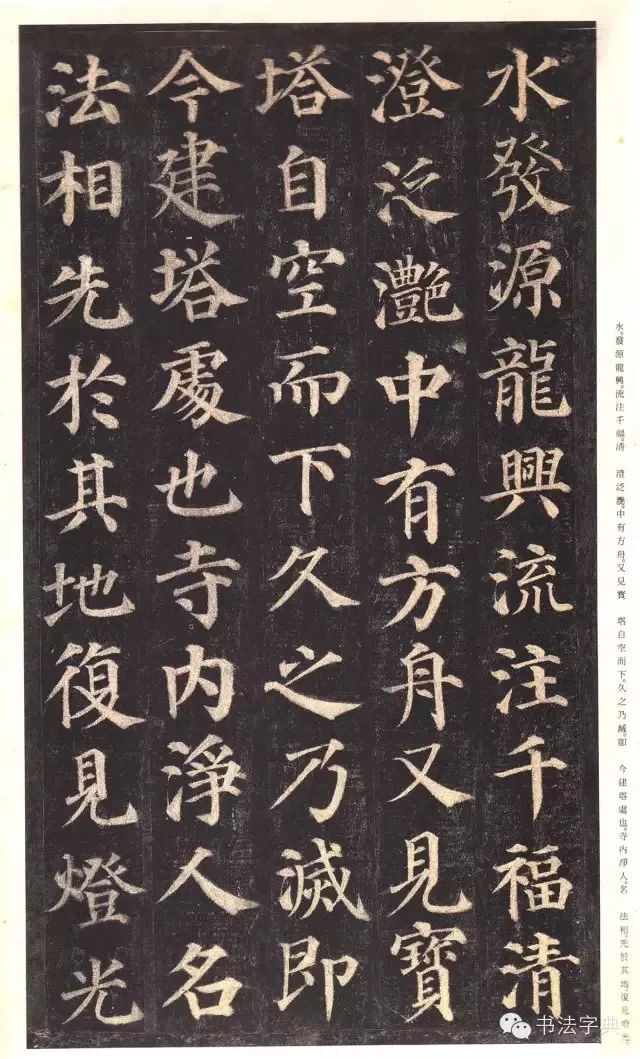 水發源龍興流注千福清
澄泛灔中有方舟又見寶
塔自空而下久之乃滅即
今建塔處也寺内淨人名
法相先於其地復見燈光
水。發源龍興。流注千福。清　澄泛灔。中有方舟。又見寶　塔自空而下。久之乃滅。卽　今建塔處也。寺內淨人。名　法相。先於其地。復見燈光。
书法字典